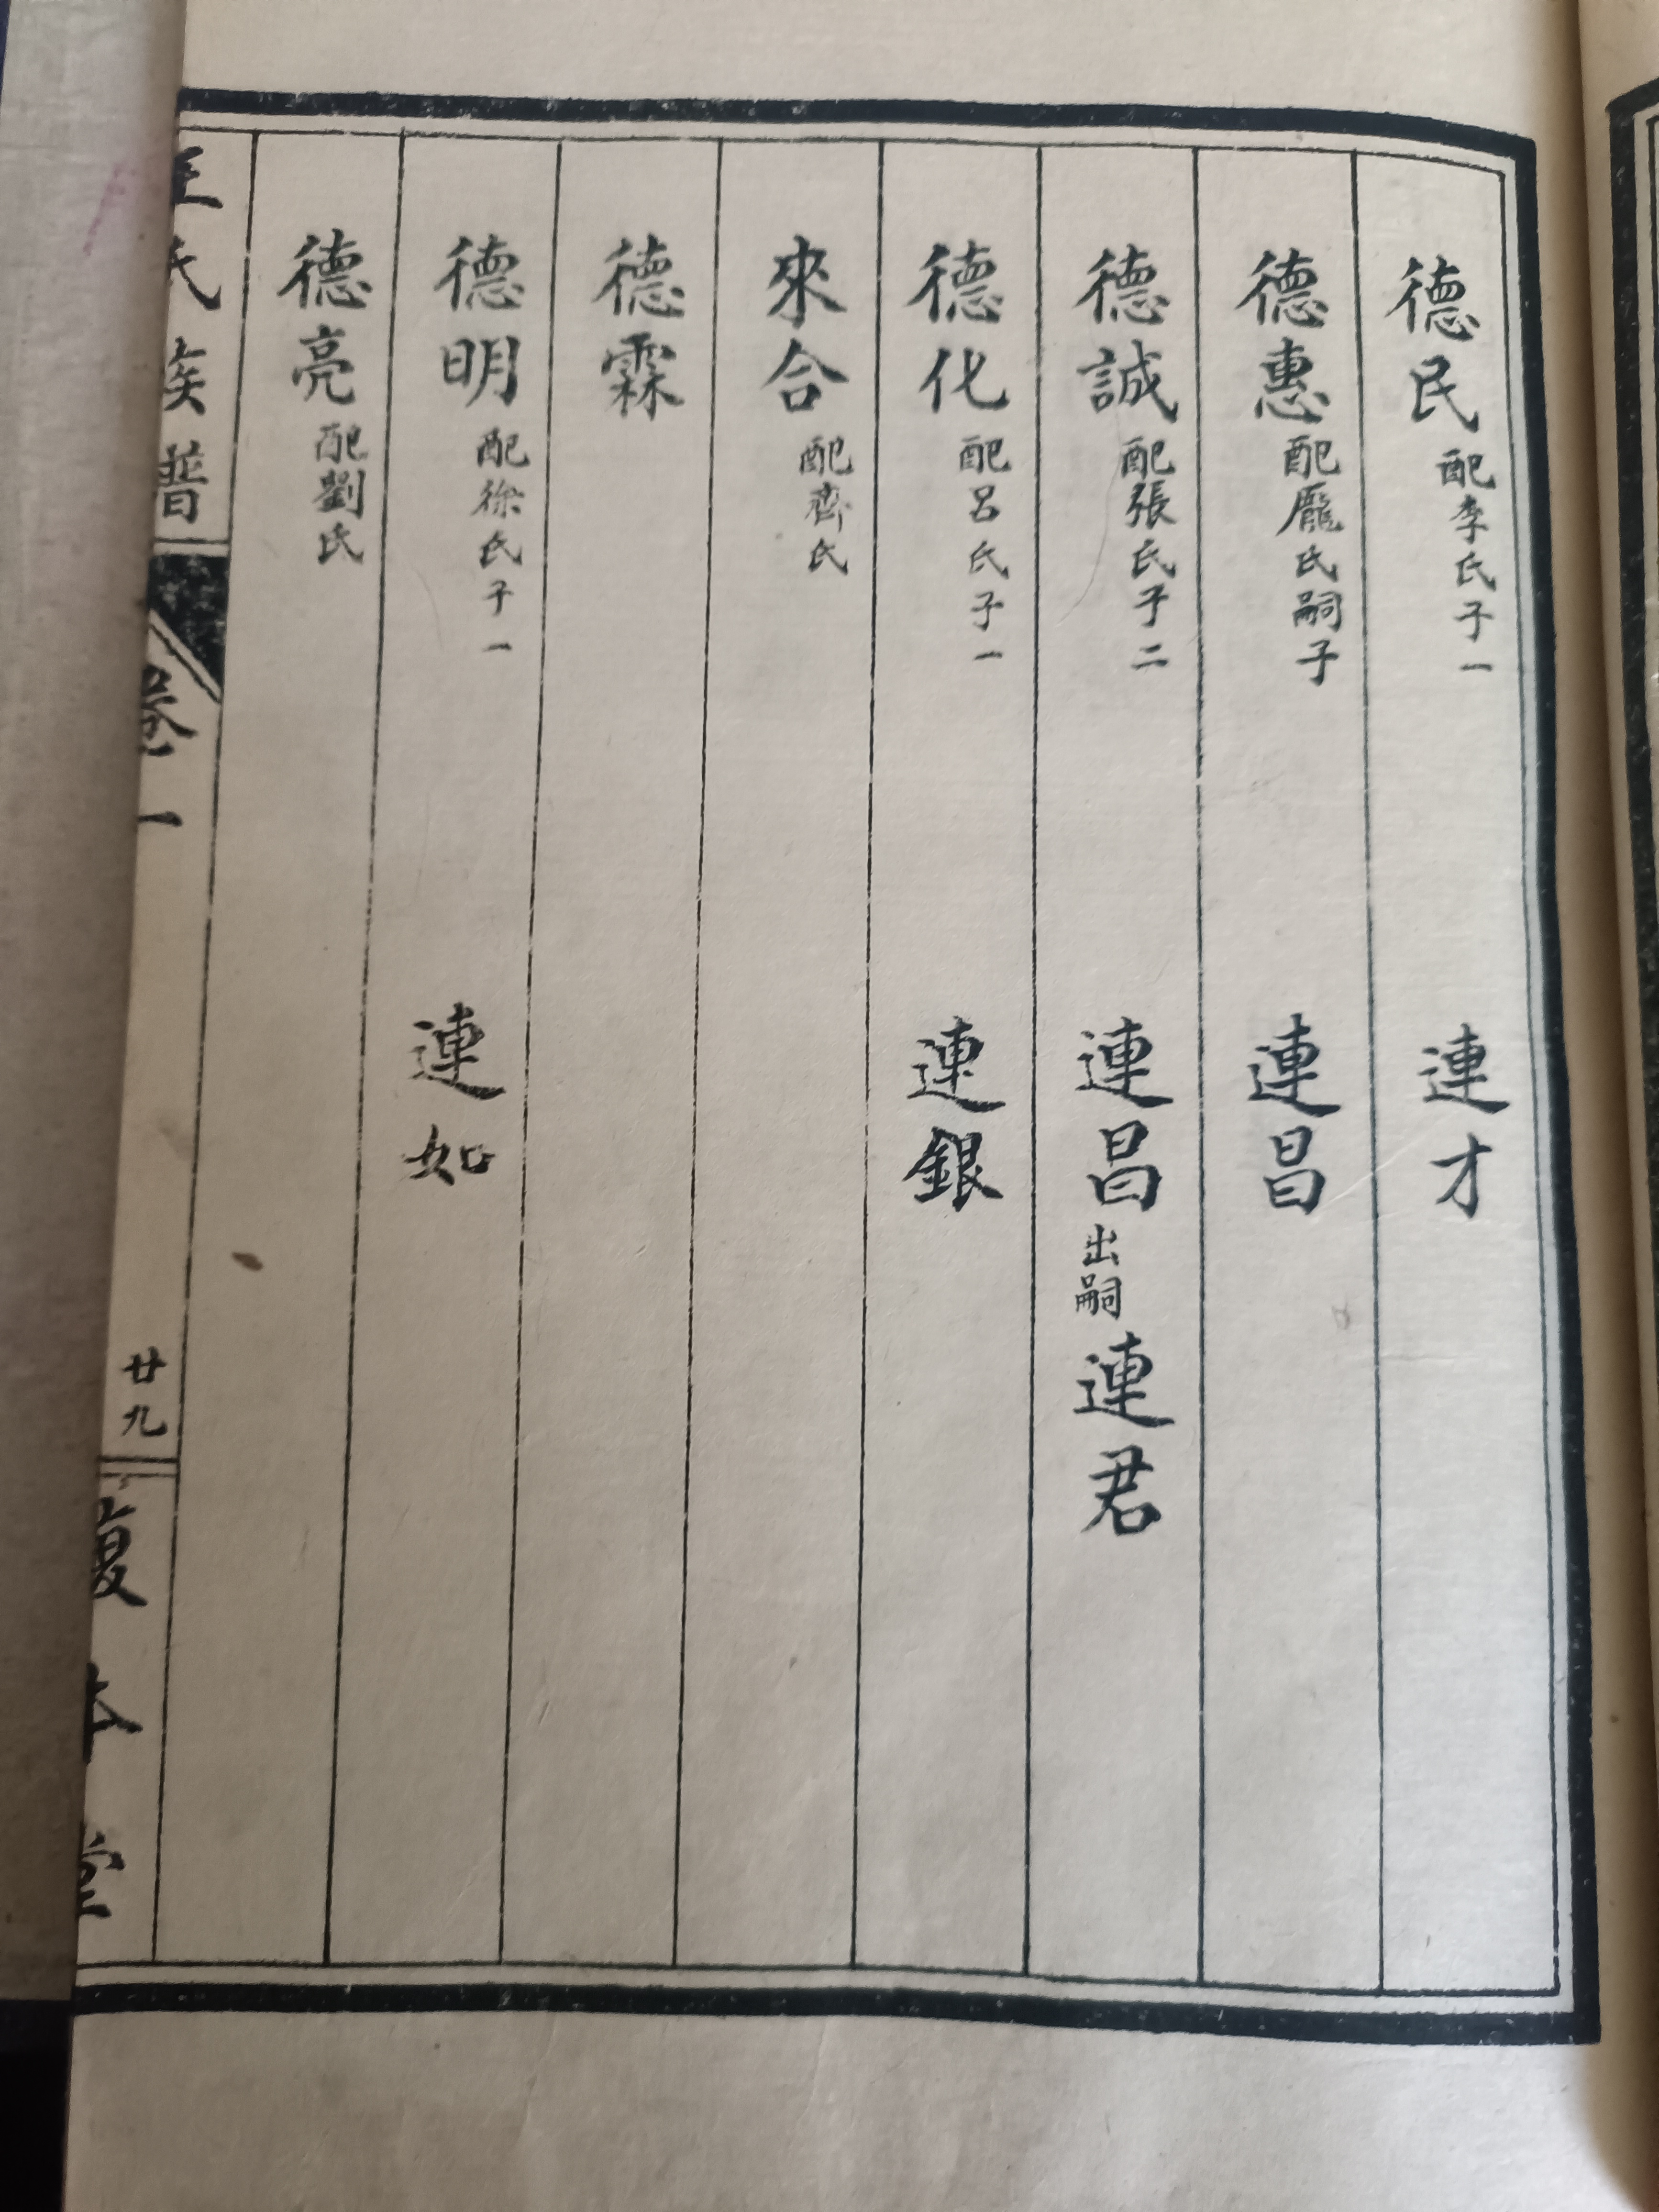 德民 配李氏子一 連才
德惠 配龐氏嗣子 連昌
德誠 配張氏子二 連昌 出嗣 連君
德化 配呂氏子一 連銀
來合 配齊氏
德霖
德明 配徐氏子一 連如
德亮 配劉氏
氏族譜 卷一 廿九 復本堂